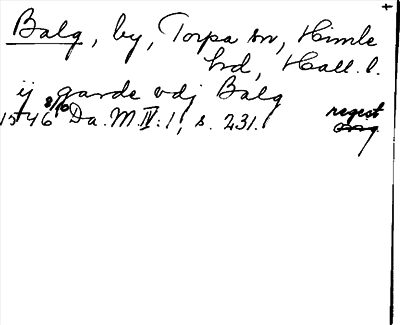 Balg, by, Torpa sn, Himle
hd, Hall. l.
ij garde vdj Balg
1546 8/10 Da. M. IV: 1, s. 231. regest